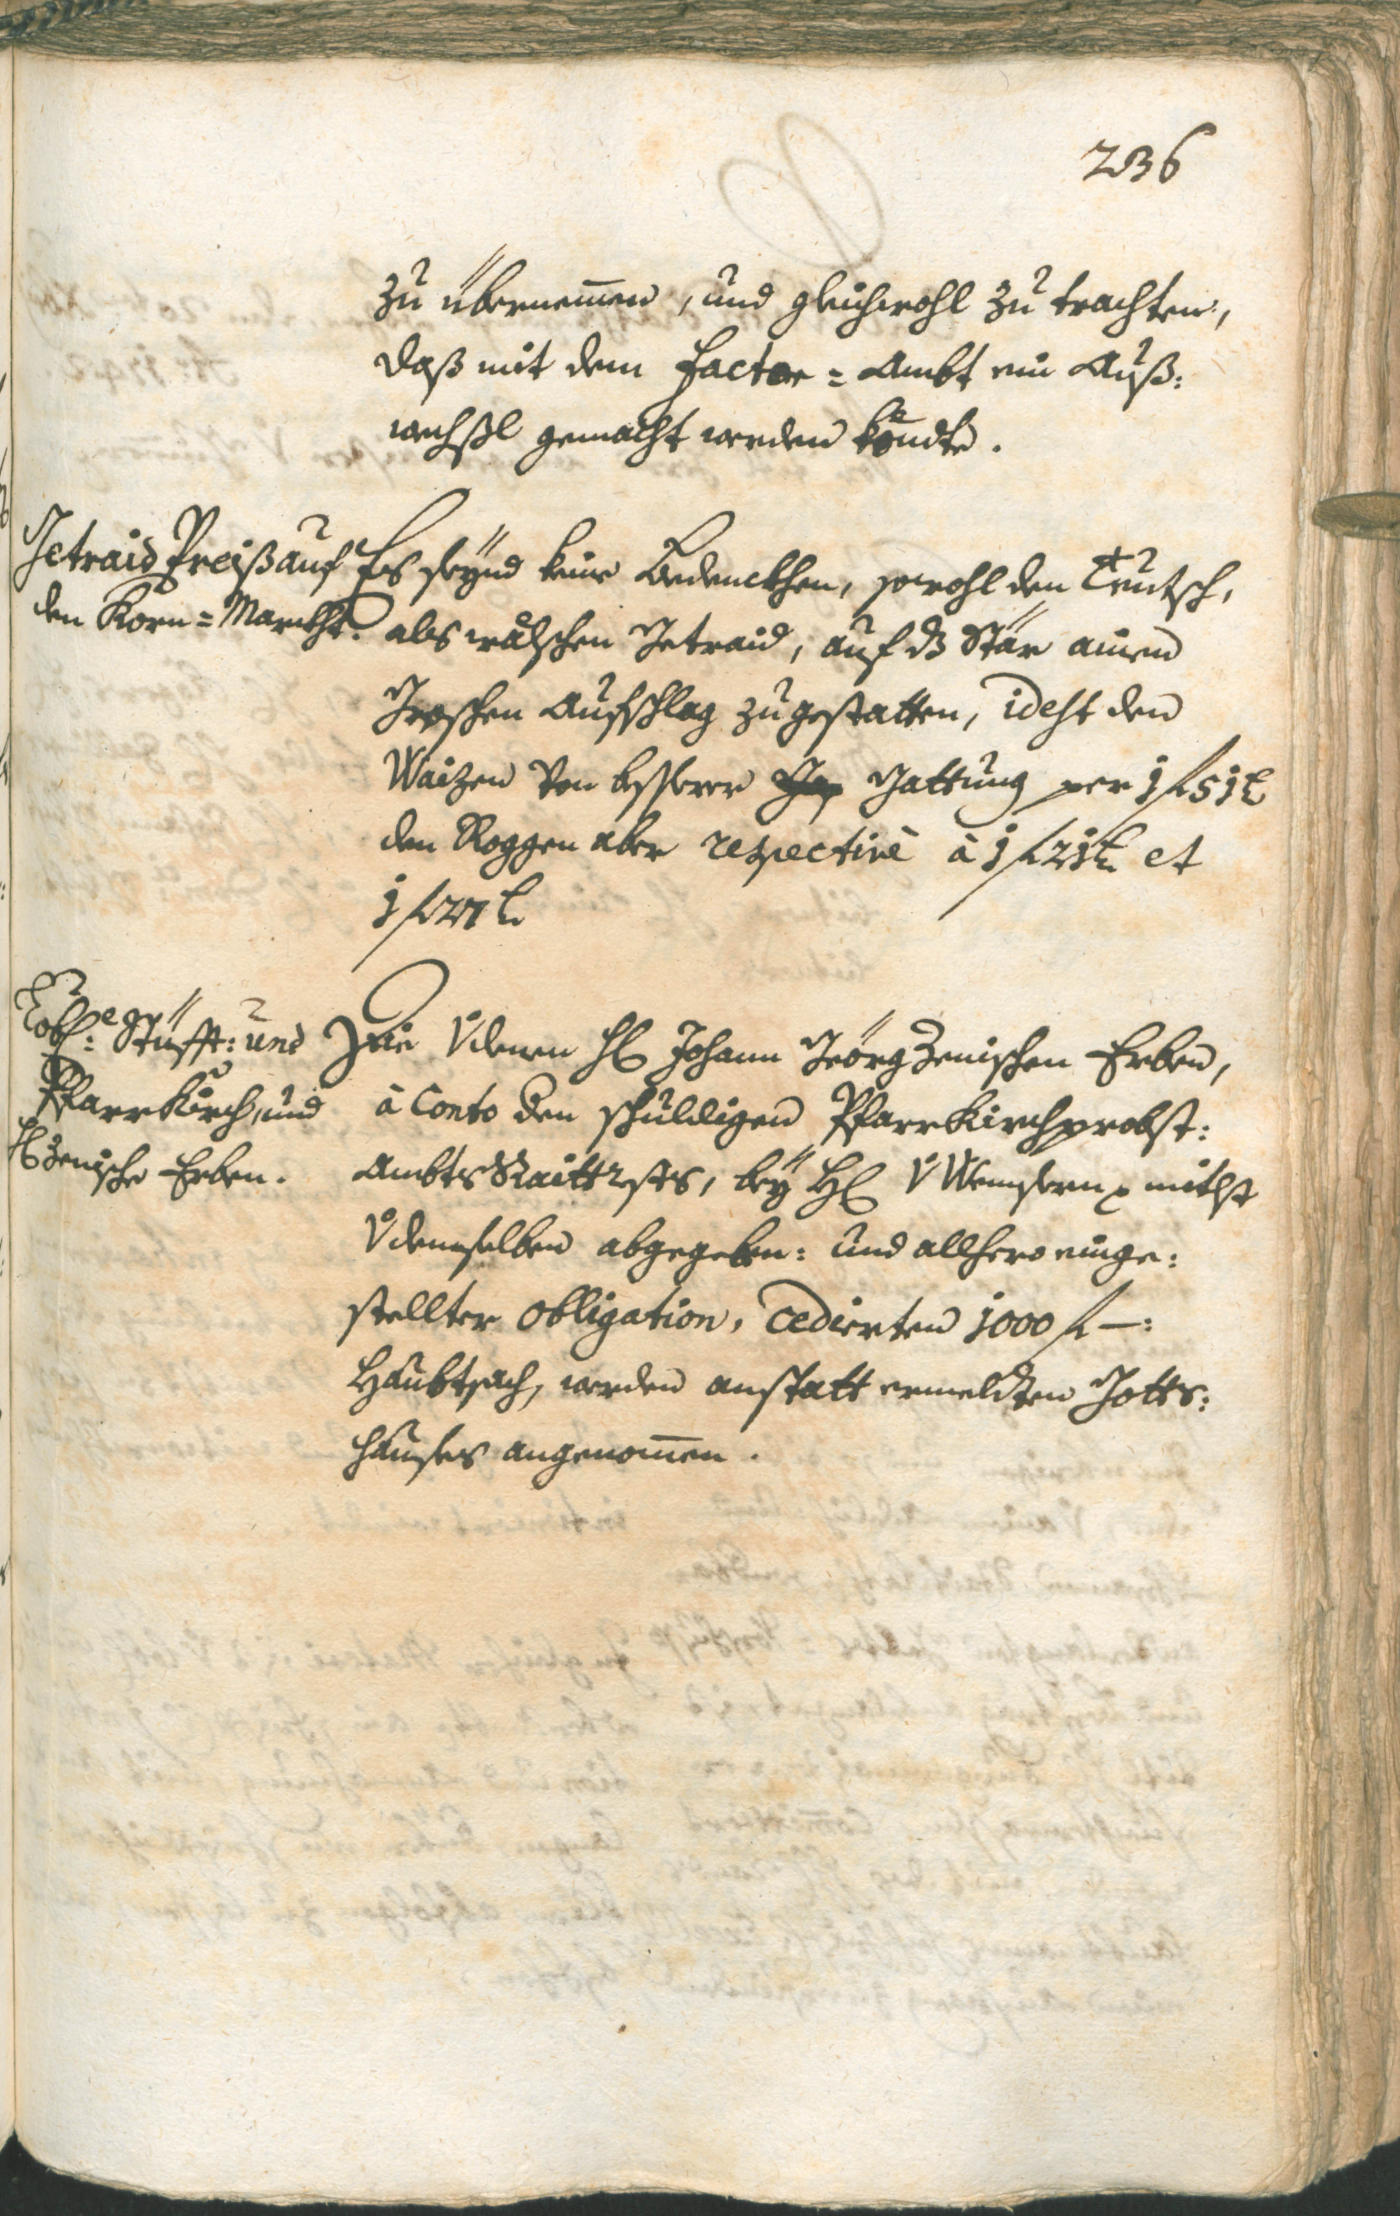 236
zu übernem̅en, und gleichwohl zu trachten,
daß mit dem Factor=Ambt ein Auß:
wechßl gemacht werden köndte.
Getraid Preiß auf
den Korn=Marckht.
Es seÿnd keine Bedenckhen, sowohl den Teutsch,
als wälschen Getraid, auf dz Stär ainen
Groschen Aufschlag zugestatten, id est den
Waizen von besserer Gattung per 1 f 51 x
den Roggen aber respectivè à 1 f 21 x et
1 f 27 x
Löbl: Stüfft: und
Pfarr Kirch, und
H Zenische Erben.
Die v denen H Johann Geörg Zenischen Erben,
à Conto den schuldigen Pfarrkirchprobst:
Ambts Raittrests, beÿ H v Wensern mitlst
v demselben abgegeben: und allhero einge:
stellter obligation, cedierten 1000 f —:
Haubtsach, werden anstatt ermeldten Gotts:
hauses angenom̅en.